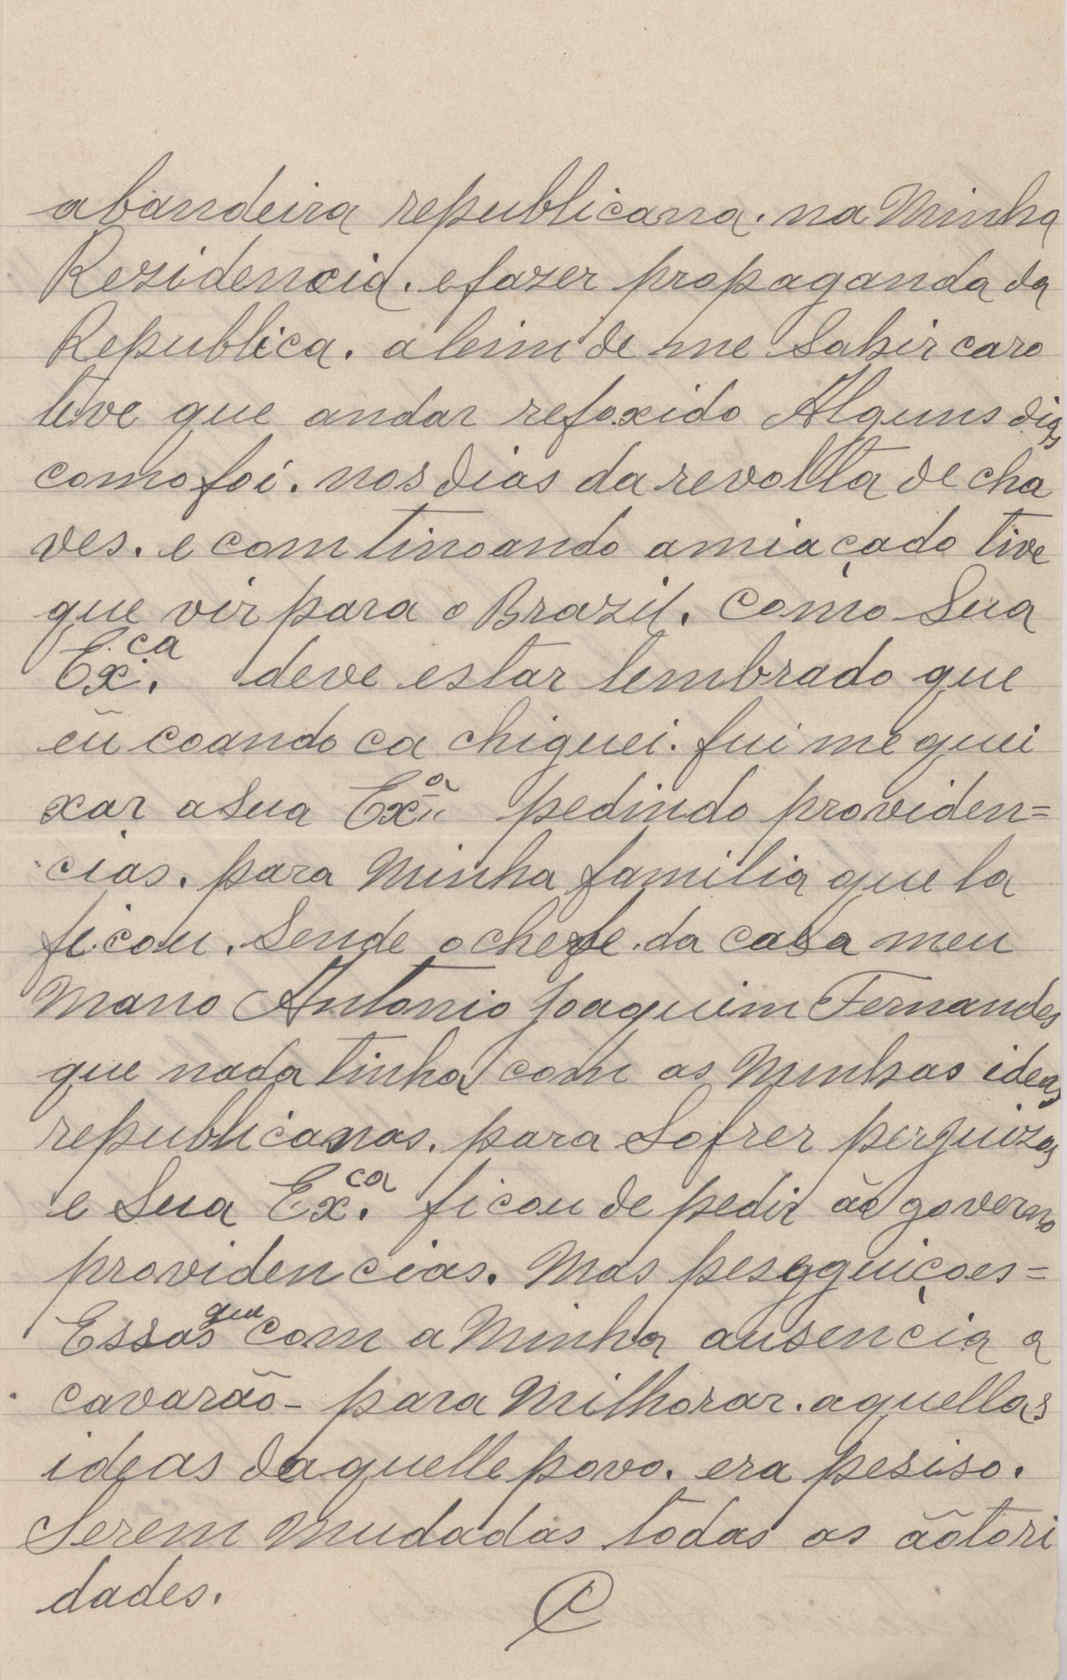 abandeira republicana. na Minha
Rezidencia. efazer propaganda da
Republica. aleim de me Sahir caro
teve que andar refoxido Alguns dias
como foi. nos dias da revolta de cha
ves. e comtinoando amiaçado tive
que vir para o Brazil. Como Sua
Ex.ca deve estar lembrado que
eũ coando ca chiguei. fui me quei
xar a Sua Ex.a pedindo providen=
cias. para Minha familia que la
ficou. Sende o chefe da casa meu
Mano Antonio Joaquim Fernandes
que nada tinha com as Minhas ideas
republicanas. para Sofrer
e Sua Ex.ca ficou de pedir ão governo
providencias. Mas pesgguiçoes=
Essas que com a Minha ausencia a
cavarão- para Milhorar. aquellas
ideas daquelle povo. era pesiso.
Serem Mudadas todas as ãotori
dades.